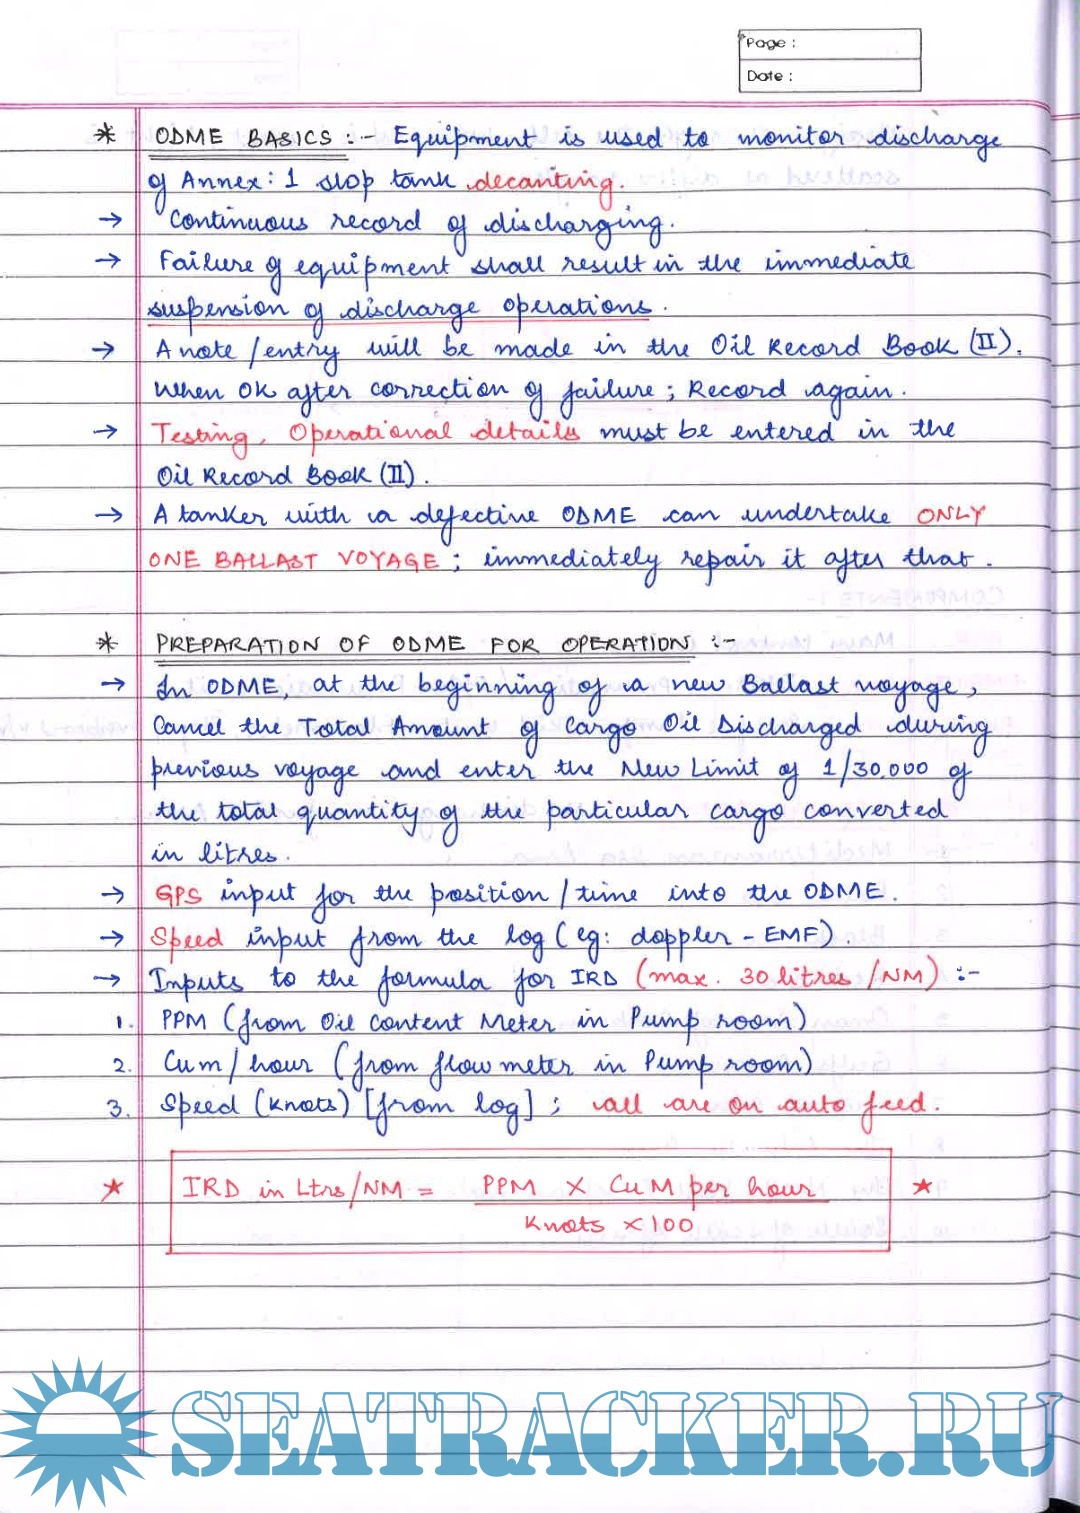 Page :
Date :
* ODME BASICS :- Equipment is used to monitor discharge
of Annex: 1 slop tank decanting.
→ Continuous record of discharging.
→ Failure of equipment shall result in the immediate
suspension of discharge operations.
→ A note / entry will be made in the Oil Record Book (II).
When OK after correction of failure ; Record again.
→ Testing, Operational details must be entered in the
Oil Record Book (II).
→ A tanker with a defective ODME can undertake ONLY
ONE BALLAST VOYAGE ; immediately repair it after that.
* PREPARATION OF ODME FOR OPERATION :-
→ In ODME, at the beginning of a new Ballast voyage,
Cancel the Total Amount of Cargo Oil Discharged during
previous voyage and enter the New Limit of 1/30,000 of
the total quantity of the particular cargo converted
in litres.
→ GPS input for the position / time into the ODME.
→ Speed input from the log (eg: doppler - EMF).
→ Inputs to the formula for IRD (max. 30 litres / NM) :-
1. PPM (from Oil Content Meter in Pump room)
2. Cum / hour (from flow meter in Pump room)
3. Speed (Knots) [from log] ; all are on auto feed.
★ IRD in Ltrs/NM = PPM X CuM per hour ★
Knots X 100
SEATRACKER.RU